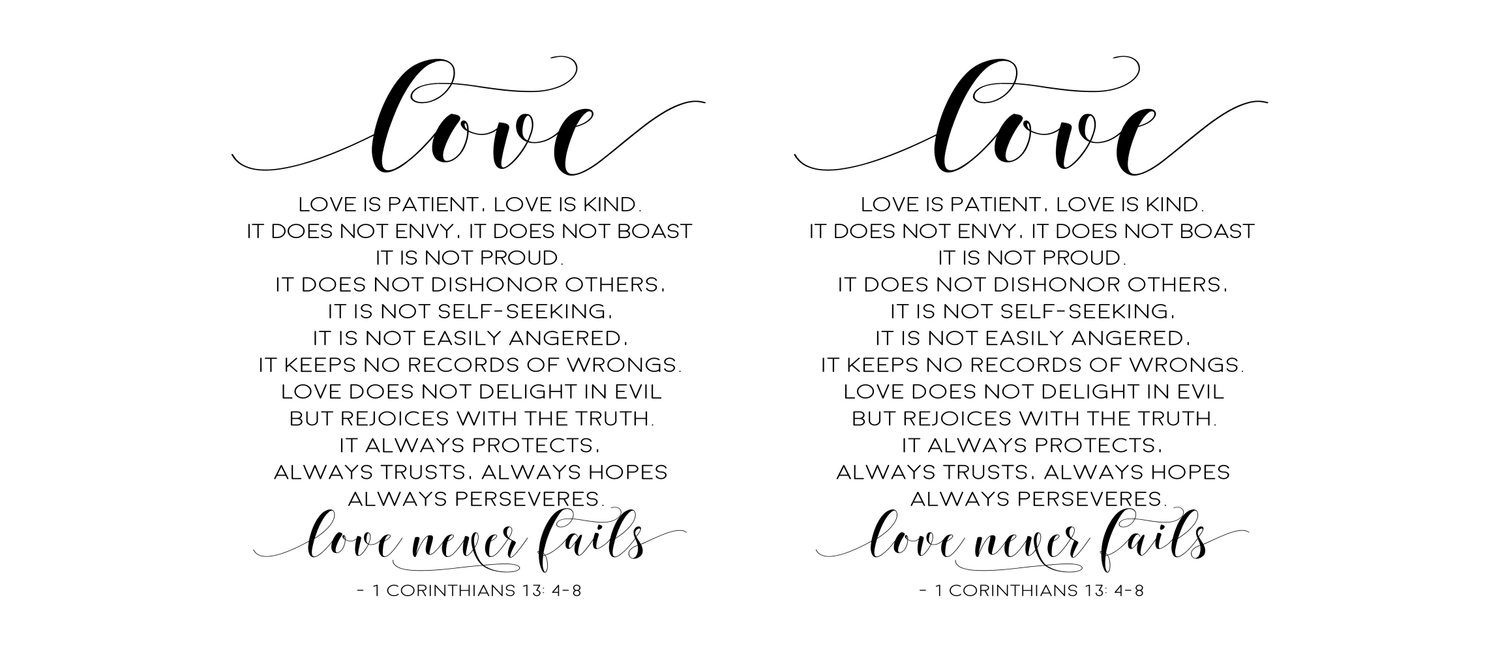 love
LOVE IS PATIENT, LOVE IS KIND.
IT DOES NOT ENVY, IT DOES NOT BOAST
IT IS NOT PROUD.
IT DOES NOT DISHONOR OTHERS,
IT IS NOT SELF-SEEKING,
IT IS NOT EASILY ANGERED,
IT KEEPS NO RECORDS OF WRONGS.
LOVE DOES NOT DELIGHT IN EVIL
BUT REJOICES WITH THE TRUTH.
IT ALWAYS PROTECTS,
ALWAYS TRUSTS, ALWAYS HOPES
ALWAYS PERSEVERES.
love never fails
- 1 CORINTHIANS 13: 4-8
love
LOVE IS PATIENT, LOVE IS KIND.
IT DOES NOT ENVY, IT DOES NOT BOAST
IT IS NOT PROUD.
IT DOES NOT DISHONOR OTHERS,
IT IS NOT SELF-SEEKING,
IT IS NOT EASILY ANGERED,
IT KEEPS NO RECORDS OF WRONGS.
LOVE DOES NOT DELIGHT IN EVIL
BUT REJOICES WITH THE TRUTH.
IT ALWAYS PROTECTS,
ALWAYS TRUSTS, ALWAYS HOPES
ALWAYS PERSEVERES.
love never fails
- 1 CORINTHIANS 13: 4-8